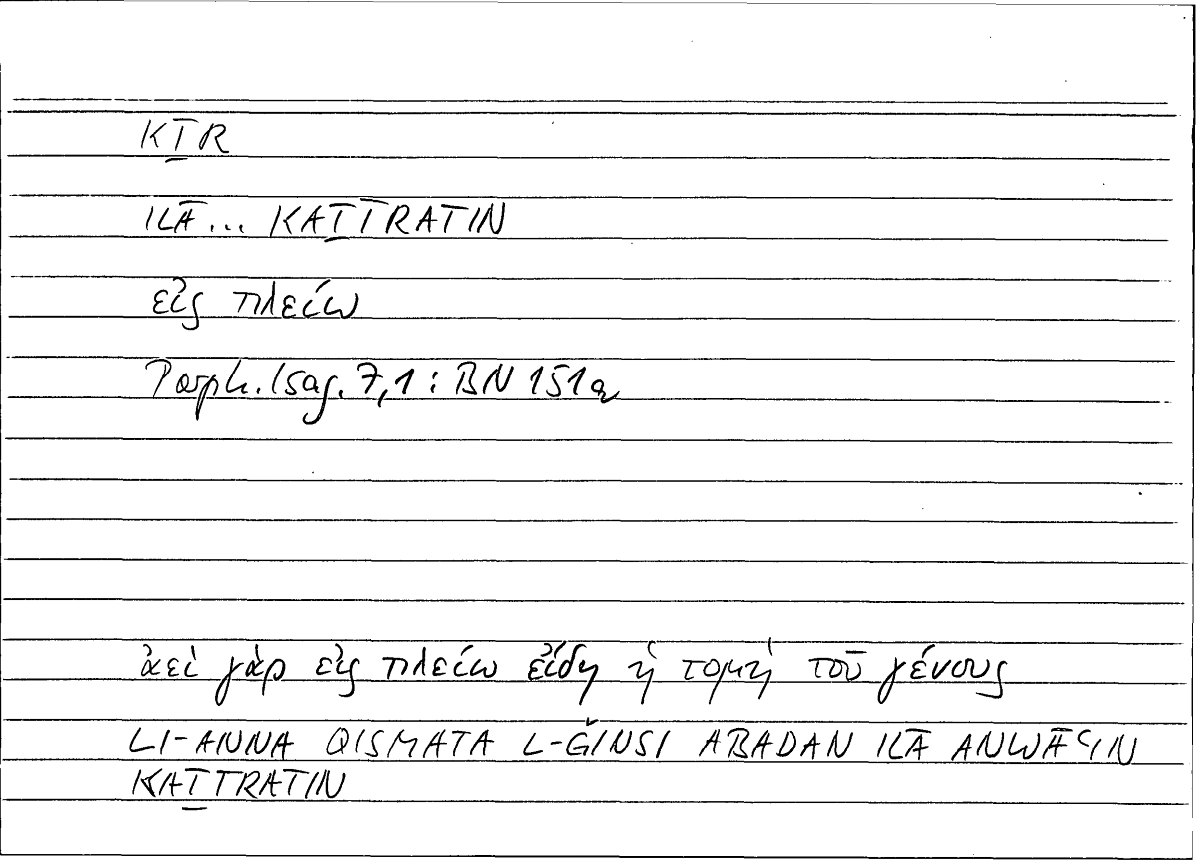 KṮR
ILĀ... KAṮĪRATIN
εἰς πλείω
Porph. Isag. 7,1 : BN 151a
ἀεὶ γὰρ εἰς πλείω εἴδη ἡ τομὴ τοῦ γένους
LI-ANNA QISMATA L-ǦINSI ABADAN ILĀ ANWĀʿIN
KAṮĪRATIN